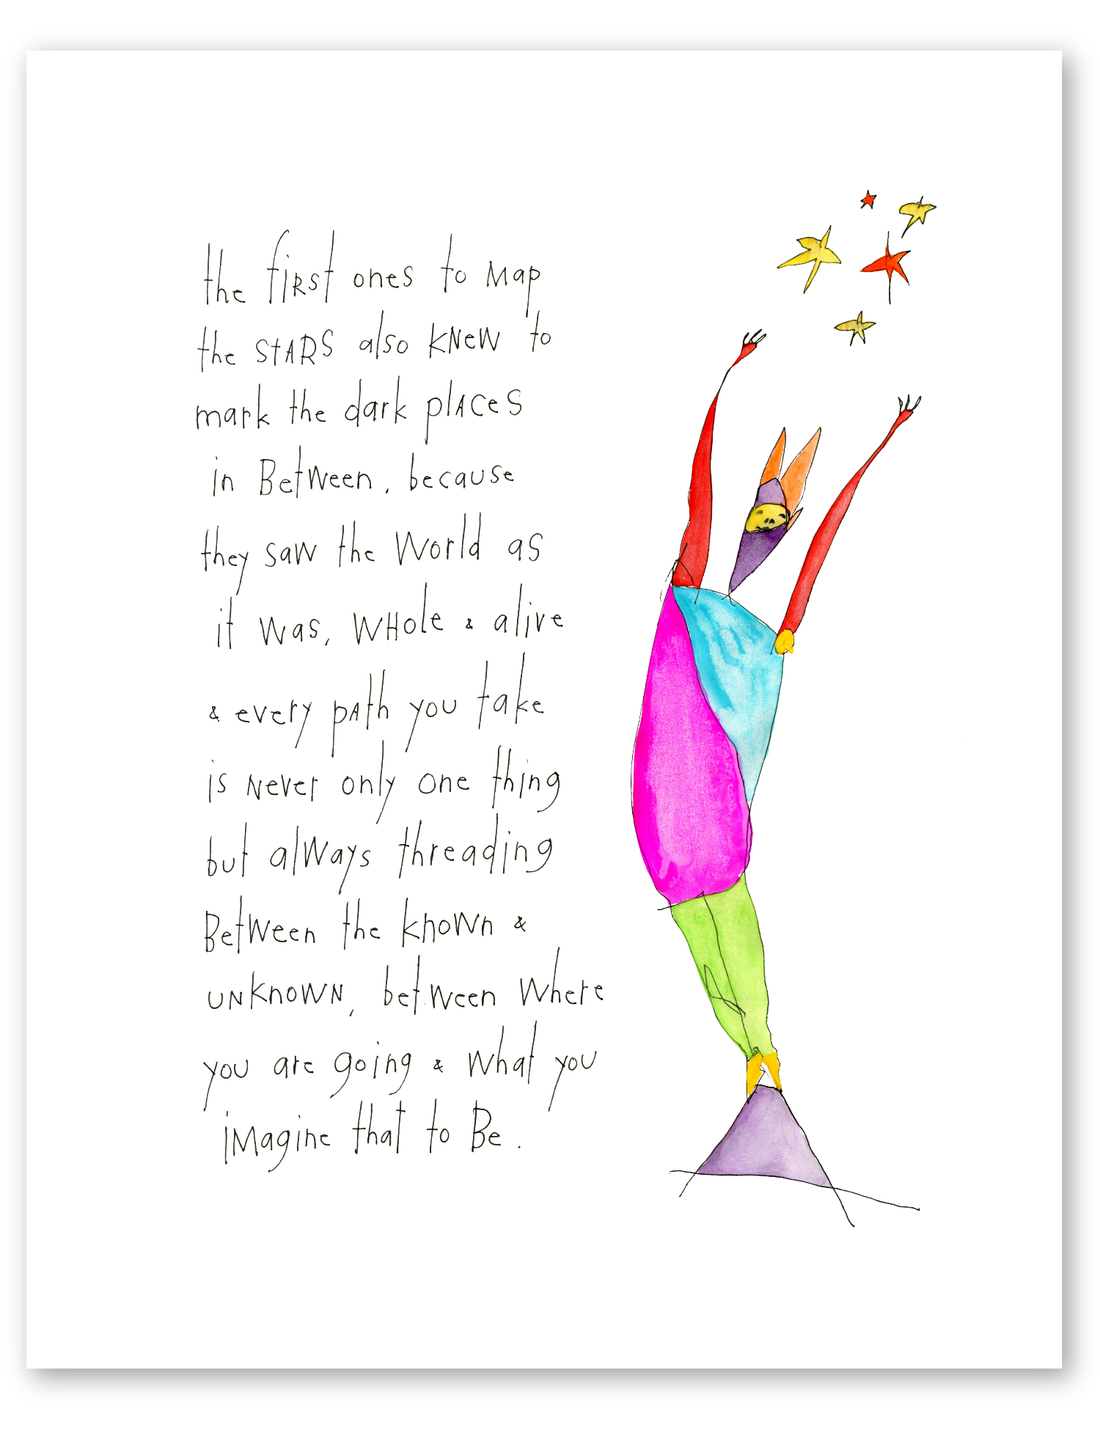 the first ones to map
the STARS also knew to
mark the dark places
in Between, because
they saw the World as
it was, whole & alive
& every path you take
is never only one thing
but always threading
Between the known &
unknown, between where
you are going & what you
imagine that to Be.